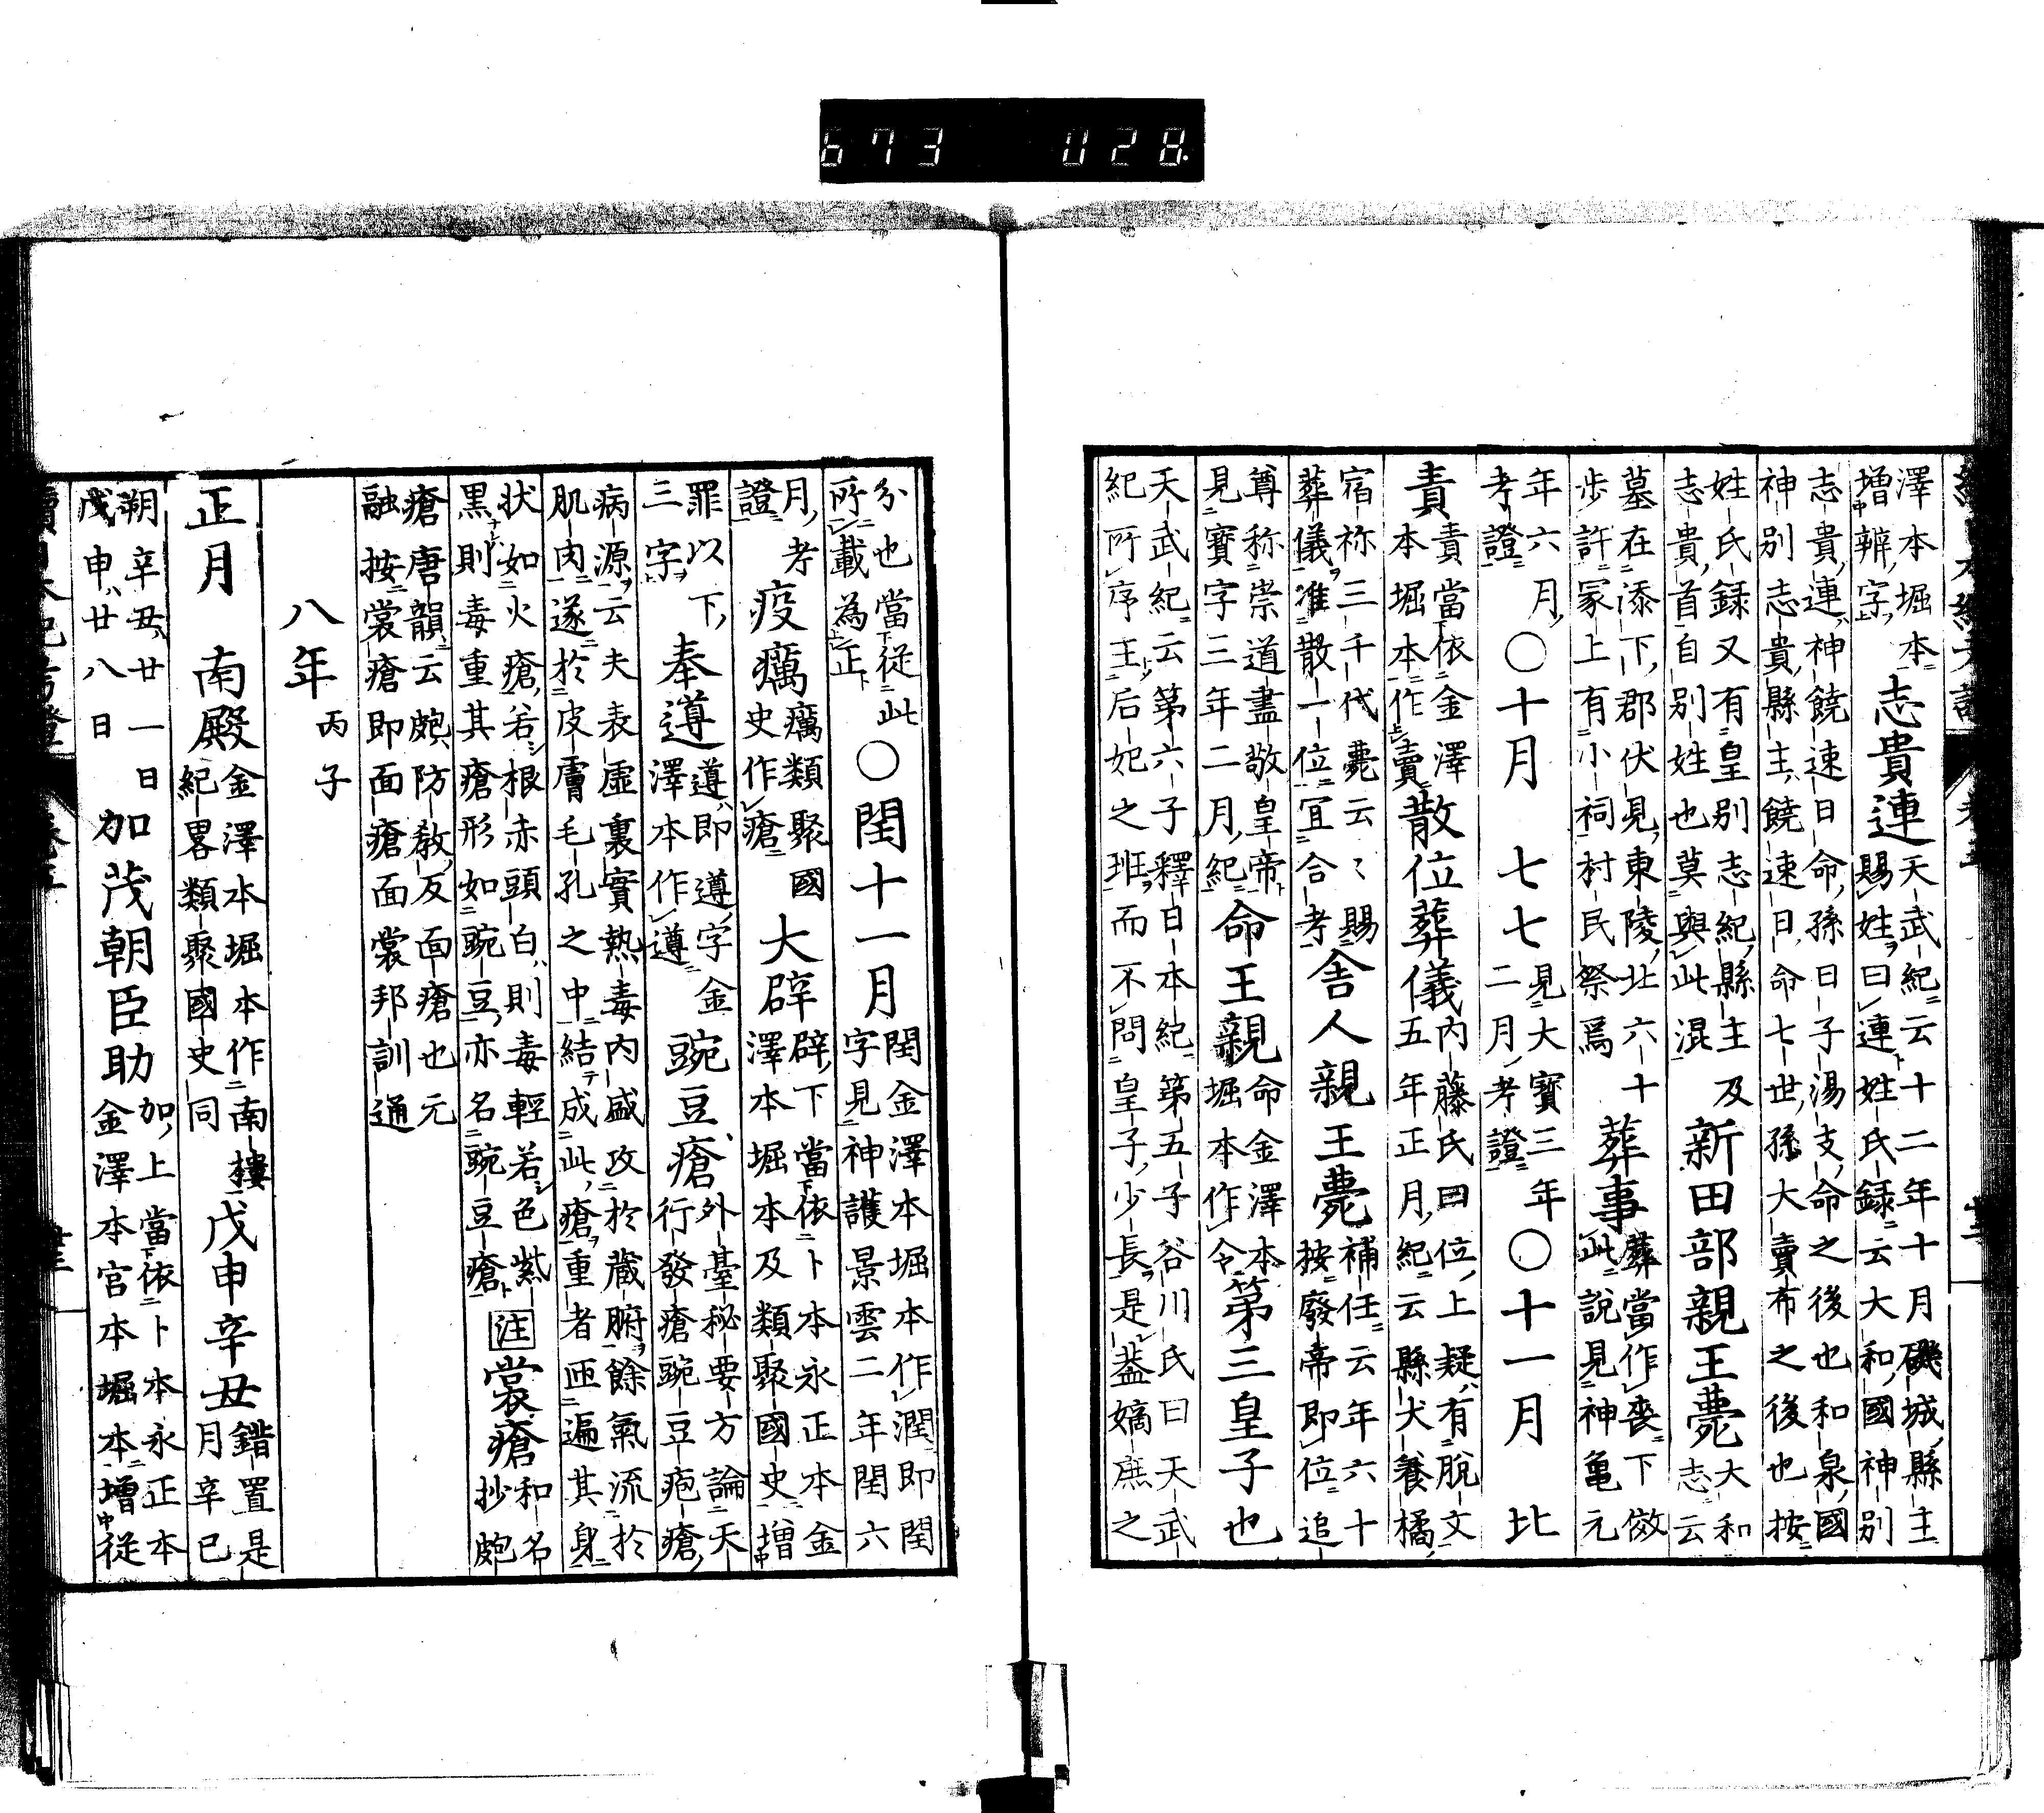 673 028
澤本堀本
増辨字
志貴連
天武紀云十二年十月磯城縣主
賜姓曰連姓氏録云大和國神別
志貴連神饒速日命孫日子湯支命之後也和泉國
神別志貴縣主饒速日命七世孫大賣布之後也按
姓氏録又有皇別志紀縣主及
志貴首自別姓也莫與此混
新田部親王薨
大和
志云
墓在添下郡伏見東陵北六十
歩許冢上有小祠村民祭焉
葬事
葬當作喪下倣
此説見神亀元
年六月
考證
〇十月 七七
見大寶三年
二月考證
〇十一月 比
責
責當依金澤
本堀本作賣
散位葬儀
内藤氏曰位上疑有脱文
五年正月紀云縣犬養橘
宿祢三千代薨云〻賜
葬儀准散一位宜合考
舎人親王薨
補任云年六十
按廢帝即位追
尊称崇道盡敬皇帝
見寶字三年二月紀
命王親
命金澤本
堀本作令
第三皇子也
天武紀云第六子釋日本紀第五子谷川氏曰天武
紀所序王后妃之班而不問皇子少長是葢嫡庶之
分也當従此
所載為正
〇閏十一月
閏金澤本堀本作潤即閏
字見神護景雲二年閏六
月考
證
疫癘
癘類聚國
史作瘡
大辟
辟下當依卜本永正本金
澤本堀本及類聚國史増
罪以下
三字
奉遵
遵即遵字金
澤本作遵
豌豆瘡
外臺秘要方論天
行發瘡豌豆疱瘡
病源云夫表虚裏實熱毒内盛攻於蔵腑餘氣流於
肌肉遂於皮膚毛孔之中結成此瘡重者匝遍其身
状如火瘡若根赤頭白則毒輕若色紫
黒則毒重其瘡形如豌豆亦名豌豆瘡
注
裳瘡
和名
抄皰
瘡唐韻云皰防教反面瘡也元
融按裳瘡即面瘡面裳邦訓通
八年
丙子
正月 南殿
金澤本堀本作南樓
紀畧類聚國史同
戊申辛丑
錯置是
月辛巳
朔辛丑廿一日
戊申廿八日
加茂朝臣助
加上當依卜本永正本
金澤本宮本堀本増従